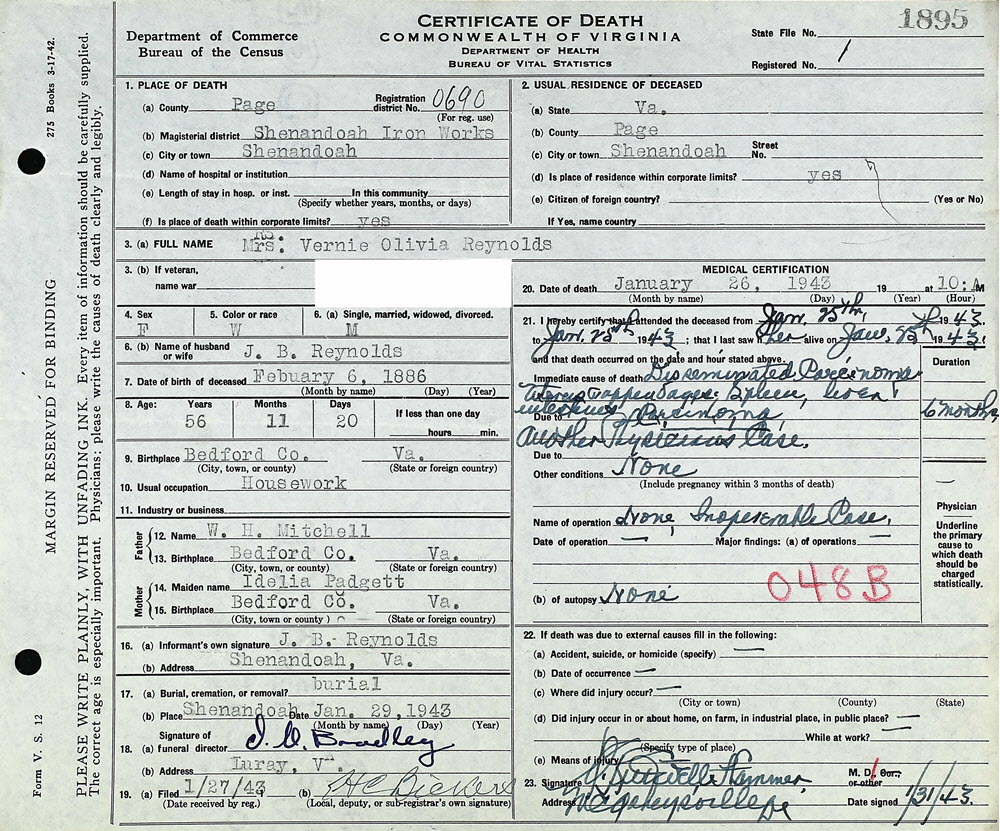 1895
CERTIFICATE OF DEATH
COMMONWEALTH OF VIRGINIA
DEPARTMENT OF HEALTH
BUREAU OF VITAL STATISTICS
Department of Commerce
Bureau of the Census
State File No.
Registered No. 1
275 Books 3-17-42.
MARGIN RESERVED FOR BINDING
PLEASE WRITE PLAINLY, WITH UNFADING INK. Every item of information should be carefully supplied.
The correct age is especially important. Physicians; please write the causes of death clearly and legibly.
Form V. S. 12
1. PLACE OF DEATH
(a) County Page Registration district No. 0690
(For reg. use)
(b) Magisterial district Shenandoah Iron Works
(c) City or town Shenandoah
(d) Name of hospital or institution
(e) Length of stay in hosp. or inst. In this community
(Specify whether years, months, or days)
(f) Is place of death within corporate limits? yes
2. USUAL RESIDENCE OF DECEASED
(a) State Va.
(b) County Page
(c) City or town Shenandoah Street No.
(d) Is place of residence within corporate limits? yes
(e) Citizen of foreign country? (Yes or No)
If Yes, name country
3. (a) FULL NAME Mrs. Vernie Olivia Reynolds
3. (b) If veteran,
name war
4. Sex 5. Color or race 6. (a) Single, married, widowed, divorced.
F W M
6. (b) Name of husband
or wife J. B. Reynolds
7. Date of birth of deceased Febuary 6, 1886
(Month by name) (Day) (Year)
8. Age: Years Months Days If less than one day
56 11 20 hours min.
9. Birthplace Bedford Co. Va.
(City, town, or county) (State or foreign country)
10. Usual occupation Housework
11. Industry or business
Father
12. Name W. H. Mitchell
13. Birthplace Bedford Co. Va.
(City, town, or county) (State or foreign country)
Mother
14. Maiden name Idelia Padgett
15. Birthplace Bedford Co. Va.
(City, town or county) (State or foreign country)
16. (a) Informant's own signature J. B. Reynolds
(b) Address Shenandoah, Va.
17. (a) Burial, cremation, or removal? burial
(b) Place Shenandoah Date Jan. 29, 1943
(Month by name) (Day) (Year)
Signature of
18. (a) funeral director
Bradley
(b) Address Luray, V
19. (a) Filed 1/27/43 (b)
(Date received by reg.) (Local, deputy, or sub-registrar's own signature)
MEDICAL CERTIFICATION
20. Date of death January 26, 1943 19 at 10: M
(Month by name) (Day) (Year) (Hour)
21. I hereby certify that I attended the deceased from Jan. 25th, 1943
to Jan. 25th 1943; that I last saw her alive on Jan. 25th 1943
and that death occurred on the date and hour stated above.
Duration
Immediate cause of death Disseminated Carcinoma
Uterus appendages: Spleen, liver
intestines
Due to Carcinoma 6 months
Another Physicians Case.
Due to
Other conditions None
(Include pregnancy within 3 months of death)
Name of operation None, Inoperable Case.
Date of operation — Major findings: (a) of operations —
048B
(b) of autopsy None
Physician
Underline the primary cause to which death should be charged statistically.
22. If death was due to external causes fill in the following:
(a) Accident, suicide, or homicide (specify) —
(b) Date of occurrence —
(c) Where did injury occur? —
(City or town) (County) (State)
(d) Did injury occur in or about home, on farm, in industrial place, in public place? —
While at work? —
(Specify type of place)
(e) Means of injury
23. Signature Hammer M. D. Cor. or other
Address Date signed 1/31/43.